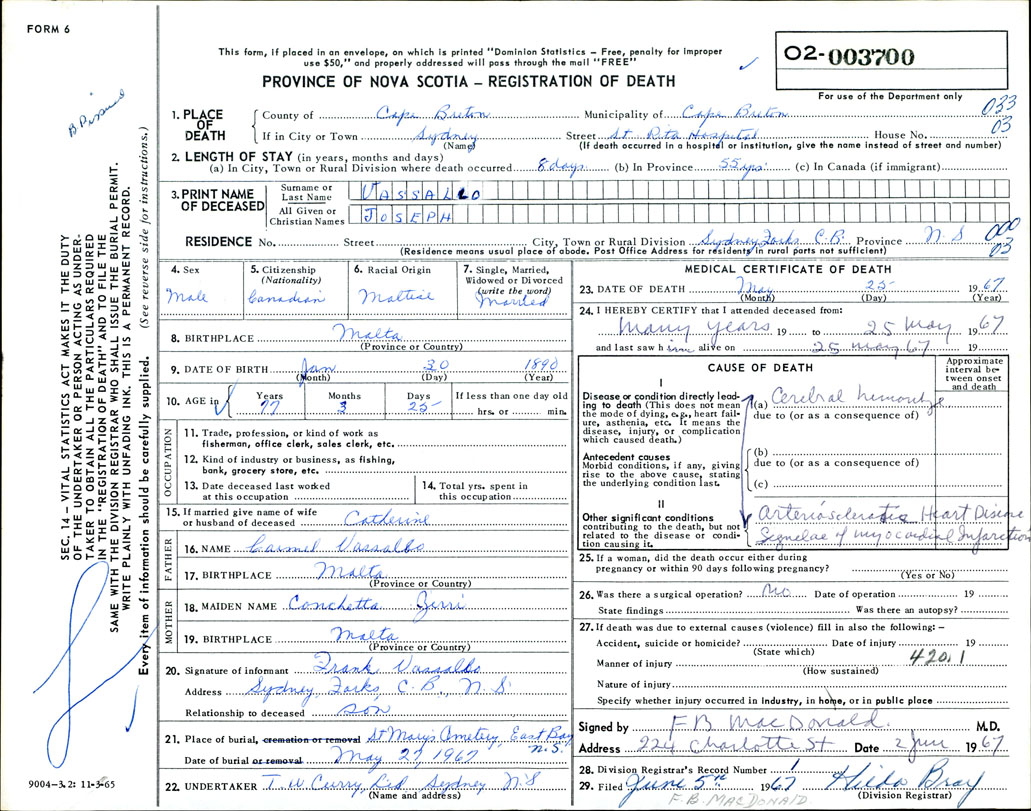 FORM 6
This form, if placed in an envelope, on which is printed "Dominion Statistics – Free, penalty for improper
use $50," and properly addressed will pass through the mail "FREE"
PROVINCE OF NOVA SCOTIA – REGISTRATION OF DEATH
02-003700
For use of the Department only
033
03
1. PLACE OF DEATH
County of Cape Breton Municipality of Cape Breton
If in City or Town Sydney Street St Rita Hospital House No.
(Name) (If death occurred in a hospital or institution, give the name instead of street and number)
2. LENGTH OF STAY (in years, months and days)
(a) In City, Town or Rural Division where death occurred 8 days (b) In Province 55 yrs (c) In Canada (if immigrant)
3. PRINT NAME OF DECEASED
Surname or Last Name VASSALLO
All Given or Christian Names JOSEPH
RESIDENCE No. Street City, Town or Rural Division Sydney Forks C.B. Province N.S
000
03
(Residence means usual place of abode. Post Office Address for residents in rural parts not sufficient)
4. Sex Male
5. Citizenship (Nationality) Canadian
6. Racial Origin Maltese
7. Single, Married, Widowed or Divorced (write the word) Married
8. BIRTHPLACE Malta
(Province or Country)
9. DATE OF BIRTH Jan 30 1890
(Month) (Day) (Year)
10. AGE in Years 77 Months 3 Days 25 If less than one day old hrs. or min.
OCCUPATION
11. Trade, profession, or kind of work as
fisherman, office clerk, sales clerk, etc.
12. Kind of industry or business, as fishing,
bank, grocery store, etc.
13. Date deceased last worked
at this occupation
14. Total yrs. spent in
this occupation
15. If married give name of wife
or husband of deceased Catherine
FATHER
16. NAME Carmel Vassallo
17. BIRTHPLACE Malta
(Province or Country)
MOTHER
18. MAIDEN NAME Conchetta
19. BIRTHPLACE Malta
(Province or Country)
20. Signature of informant Frank Vassallo
Address Sydney Forks, C.B., N.S
Relationship to deceased son
21. Place of burial, cremation or removal St Mary's Cemetery, East Bay N.S.
Date of burial or removal May 27, 1967
22. UNDERTAKER T. W. Curry, Ltd Sydney N.S
(Name and address)
MEDICAL CERTIFICATE OF DEATH
23. DATE OF DEATH May 25 1967
(Month) (Day) (Year)
24. I HEREBY CERTIFY that I attended deceased from:
many years 19 to 25 May 1967
and last saw him alive on 25 may 67 19
CAUSE OF DEATH
Approximate interval between onset and death
I
Disease or condition directly lead-
ing to death (This does not mean
the mode of dying, e.g., heart fail-
ure, asthenia, etc. It means the
disease, injury, or complication
which caused death.)
(a) Cerebral
due to (or as a consequence of)
Antecedent causes
Morbid conditions, if any, giving
rise to the above cause, stating
the underlying condition last.
(b)
due to (or as a consequence of)
(c)
II
Other significant conditions
contributing to the death, but not
related to the disease or condi-
tion causing it.
Arteriosclerotic Heart Disease
of myocardial Infarction
25. If a woman, did the death occur either during
pregnancy or within 90 days following pregnancy?
(Yes or No)
26. Was there a surgical operation? No Date of operation 19
State findings Was there an autopsy?
27. If death was due to external causes (violence) fill in also the following: –
Accident, suicide or homicide? Date of injury 19
(State which)
Manner of injury 420.1
(How sustained)
Nature of injury
Specify whether injury occurred in Industry, in home, or in public place
Signed by F B MacDonald. M.D.
Address 224 Charlotte St Date 2 June 1967
28. Division Registrar's Record Number
29. Filed June 5th 1967 Hilda Bray
F.B. MACDONALD (Division Registrar)
SEC. 14 – VITAL STATISTICS ACT MAKES IT THE DUTY
OF THE UNDERTAKER OR PERSON ACTING AS UNDER-
TAKER TO OBTAIN ALL THE PARTICULARS REQUIRED
IN THE "REGISTRATION OF DEATH" AND TO FILE THE
SAME WITH THE DIVISION REGISTRAR WHO SHALL ISSUE THE BURIAL PERMIT.
WRITE PLAINLY WITH UNFADING INK. THIS IS A PERMANENT RECORD.
Every item of information should be carefully supplied. (See reverse side for instructions.)
9004-3.2: 11-3-65